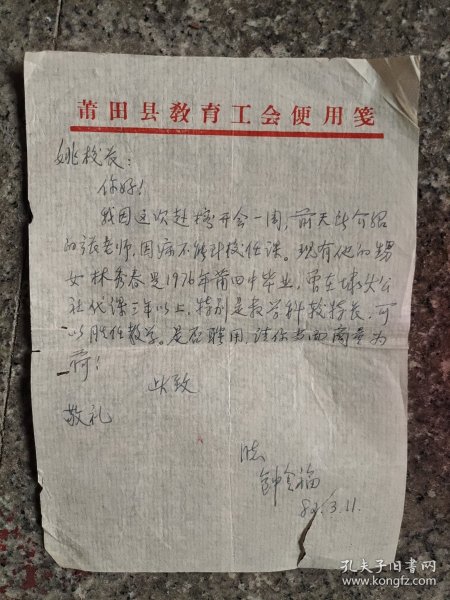 莆田县教育工会便用笺
姚校长：
你好！
我因这次赴榕开会一周，前天所介绍
的张老师，因病不能计校任课。现有他的甥
女林秀春是1976年莆四中毕业，曾在埭头公
社代课三年以上，特别是教学科较特长，可
以胜任教学。是否聘用，请你当面商量为
荷！
此致
敬礼
钟金福
82.3.11.
孔夫子旧书网
www.kongfz.com